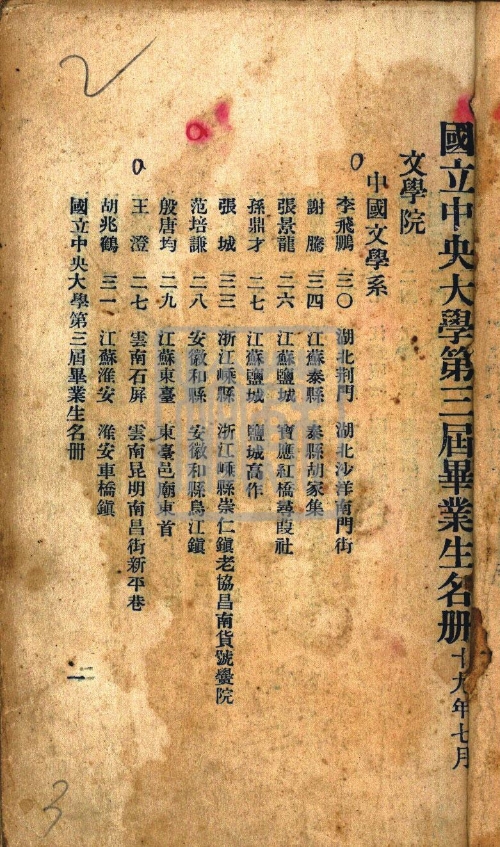 國立中央大學第三屆畢業生名册 十九年七月
文學院
中國文學系
李飛鵬 三〇 湖北荆門 湖北沙洋南門街
謝騰 三四 江蘇泰縣 泰縣胡家集
張景龍 二六 江蘇鹽城 寶應紅橋尋葭社
孫鼎才 二七 江蘇鹽城 鹽城高作
張城 三三 浙江嵊縣 浙江嵊縣崇仁鎮老協昌南貨號黌院
范培謙 二八 安徽和縣 安徽和縣烏江鎮
殷唐均 二九 江蘇東臺 東臺邑廟東首
王澄 二七 雲南石屏 雲南昆明南昌街新平巷
胡兆鶴 三一 江蘇淮安 淮安車橋鎮
國立中央大學第三屆畢業生名册
二
2
3